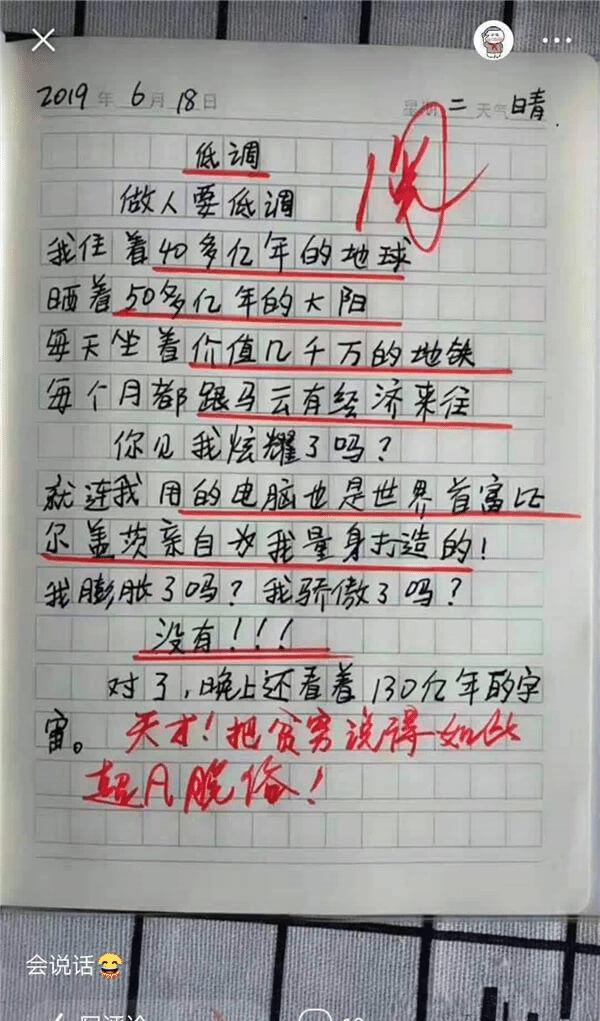 2019年 6月 18日 星期二 天气 晴
低调
阅
做人要低调
我住着40多亿年的地球
晒着50多亿年的太阳
每天坐着价值几千万的地铁
每个月都跟马云有经济来往
你见我炫耀了吗?
就连我用的电脑也是世界首富比
尔盖茨亲自为我量身打造的!
我膨胀了吗?我骄傲了吗?
没有!!!
对了,晚上还看着130亿年的宇
宙。天才!把贫穷说得如此
超凡脱俗!
会说话😂